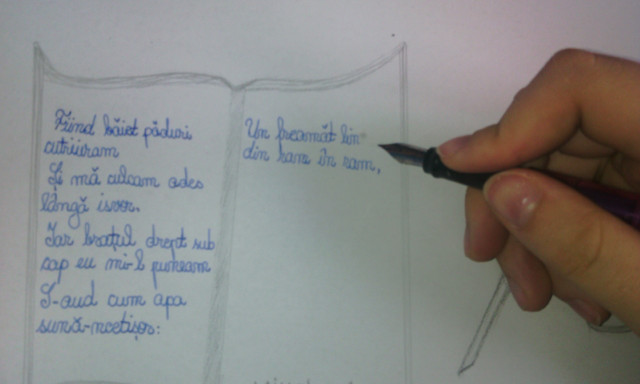 Fiind băiet păduri
cutriieram
Și mă culcam ades
lângă isvor.
Iar brațul drept sub
cap eu mi-l puneam
S-aud cum apa
sună-ncetișor:
Un freamăt lin
din ram în ram,